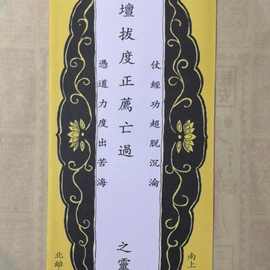 南上
仗經功超脫沉淪
壇拔度正薦亡過
之靈
憑道力度出苦海
北離